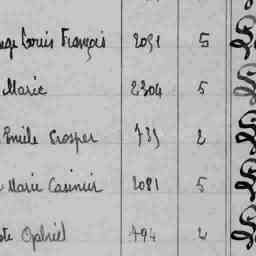 Louis François 2091 5
Marie 2304 5
Emile Prosper 739 2
Marie Casimir 2081 5
Gabriel 794 2